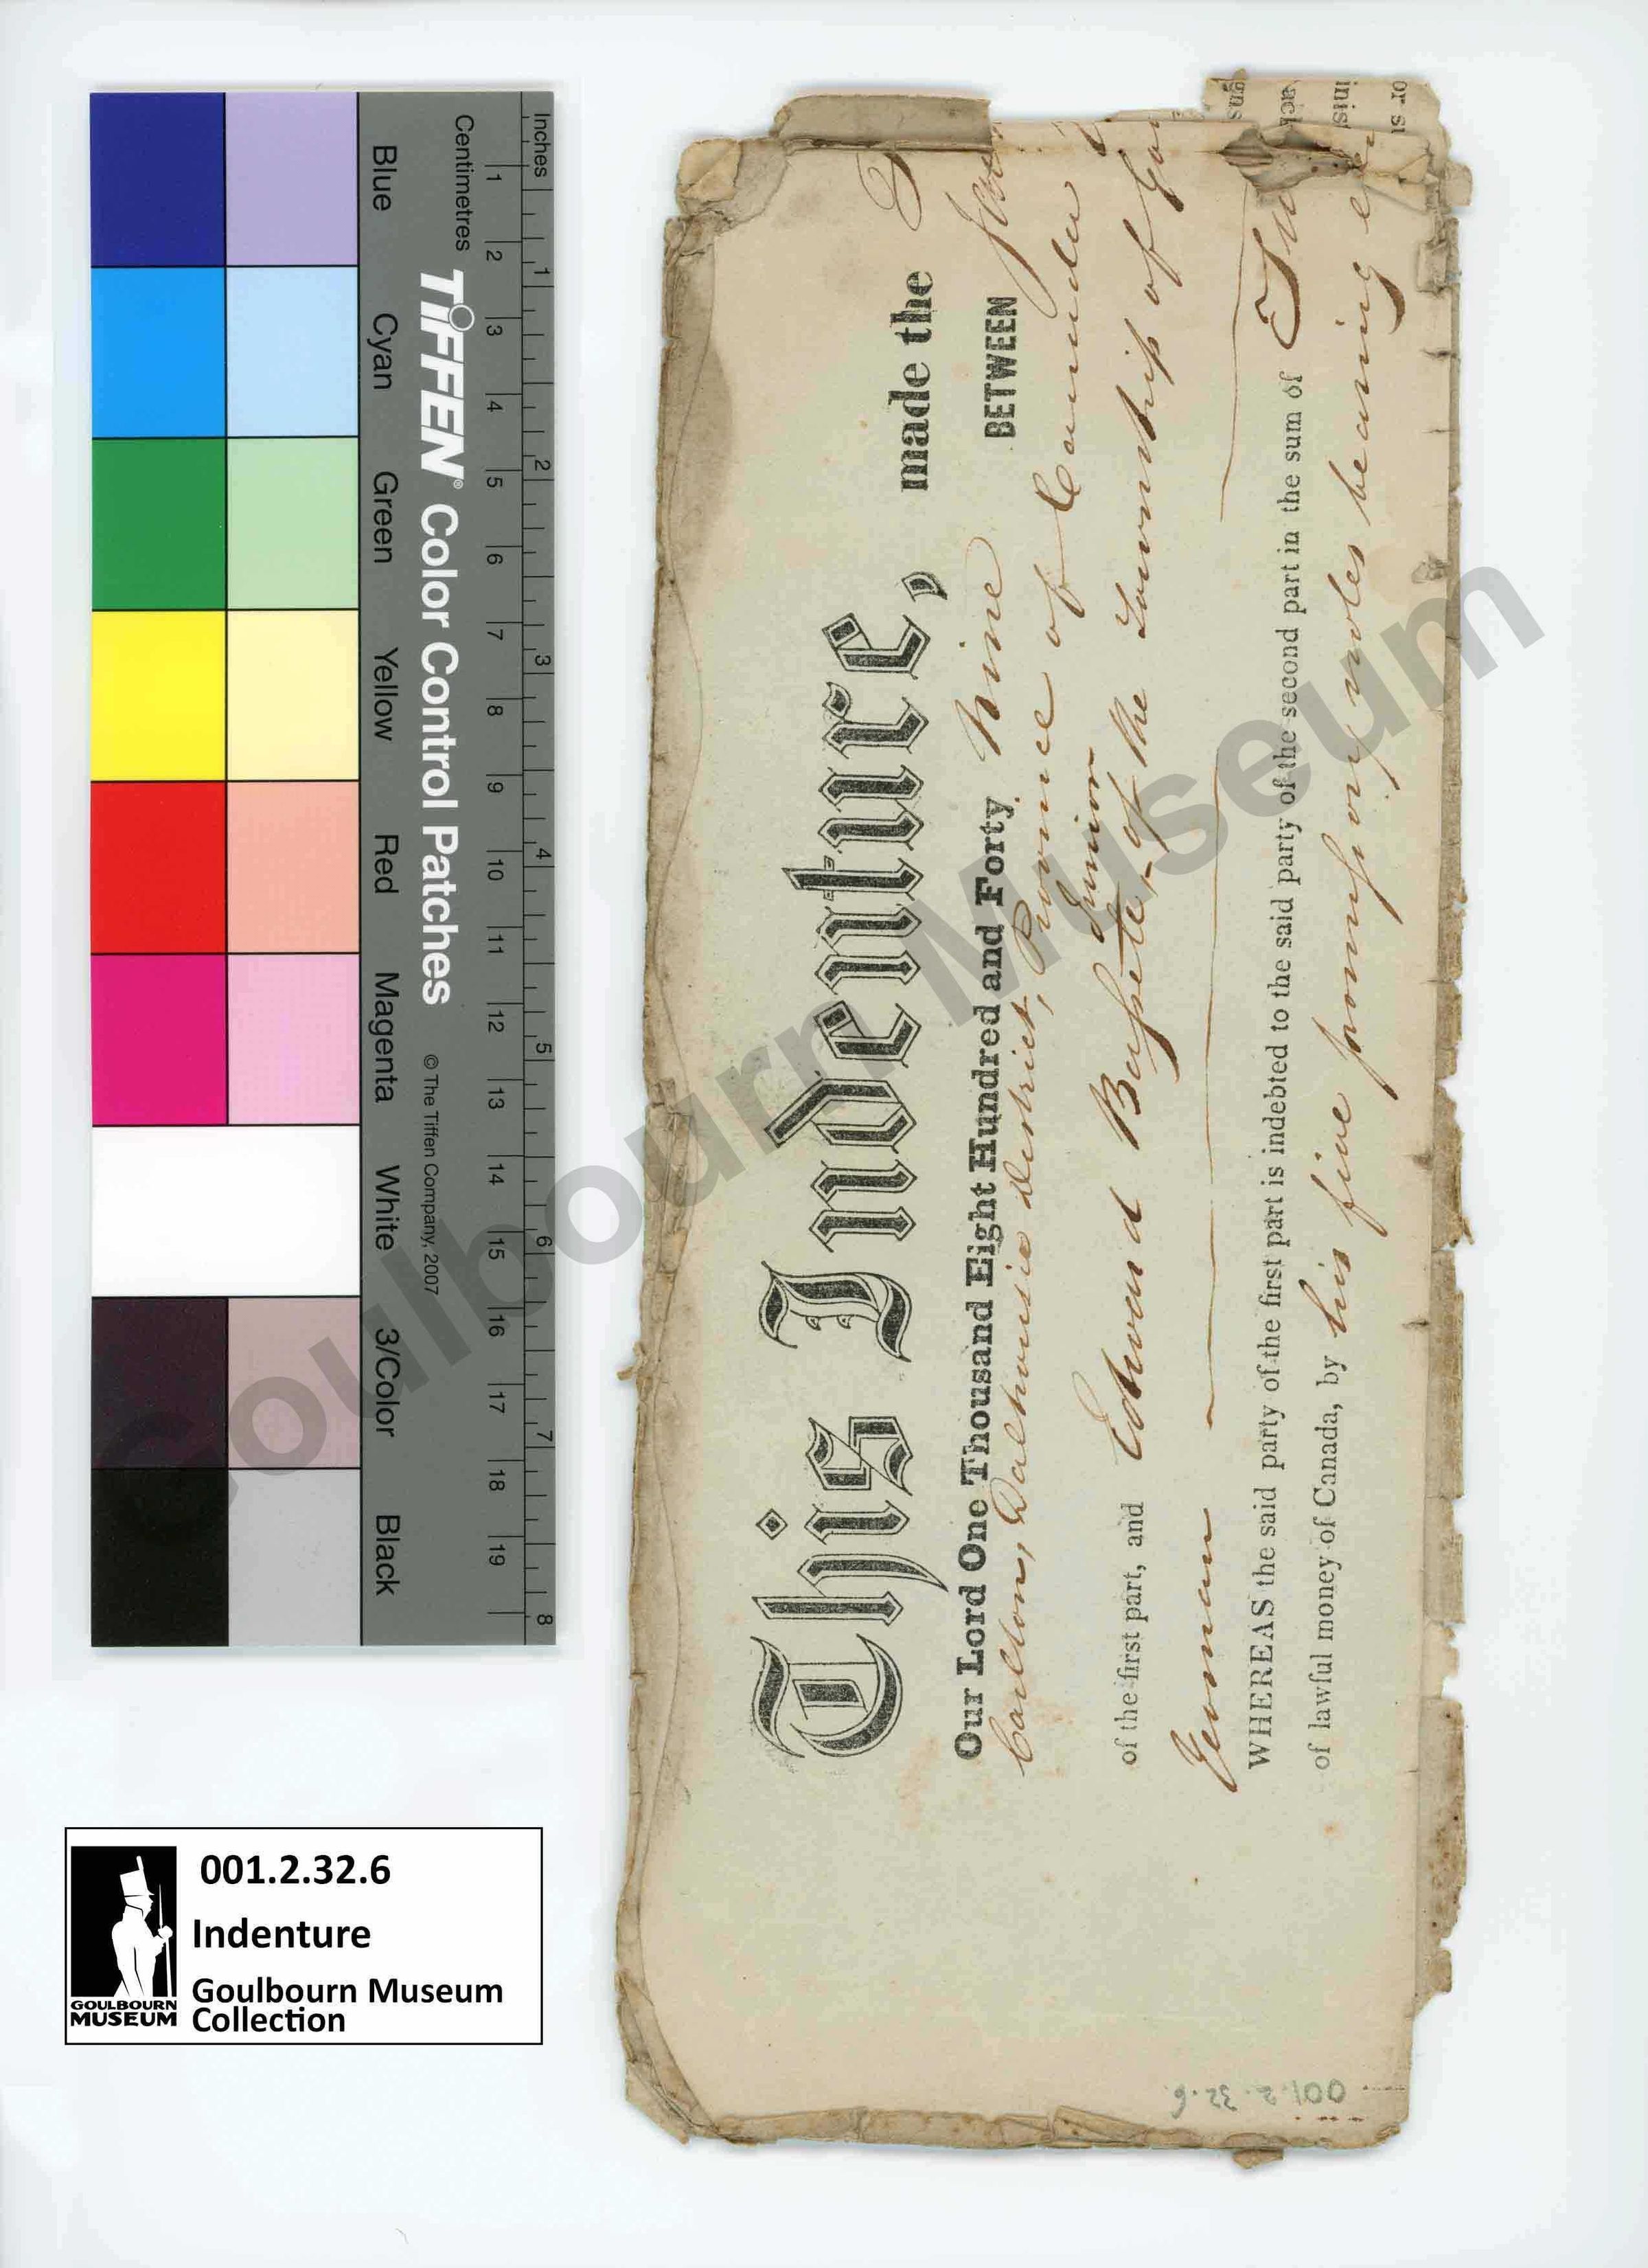 Inches
Centimetres
1 2 3 4 5 6 7 8
1 2 3 4 5 6 7 8 9 10 11 12 13 14 15 16 17 18 19
TIFFEN® Color Control Patches © The Tiffen Company, 2007
Blue Cyan Green Yellow Red Magenta White 3/Color Black
This Indenture, made the
Our Lord One Thousand Eight Hundred and Forty Nine BETWEEN
Carlton, Dalhousie district, Province of Canada
Junior
of the first part, and Edward of the Township of
Yeoman
WHEREAS the said party of the first part is indebted to the said party of the second part in the sum of
of lawful money of Canada, by his five promissory notes bearing
or su
inis
ack
gns
001.2.32.6
001.2.32.6
Indenture
Goulbourn Museum
Collection
GOULBOURN
MUSEUM
Goulbourn Museum